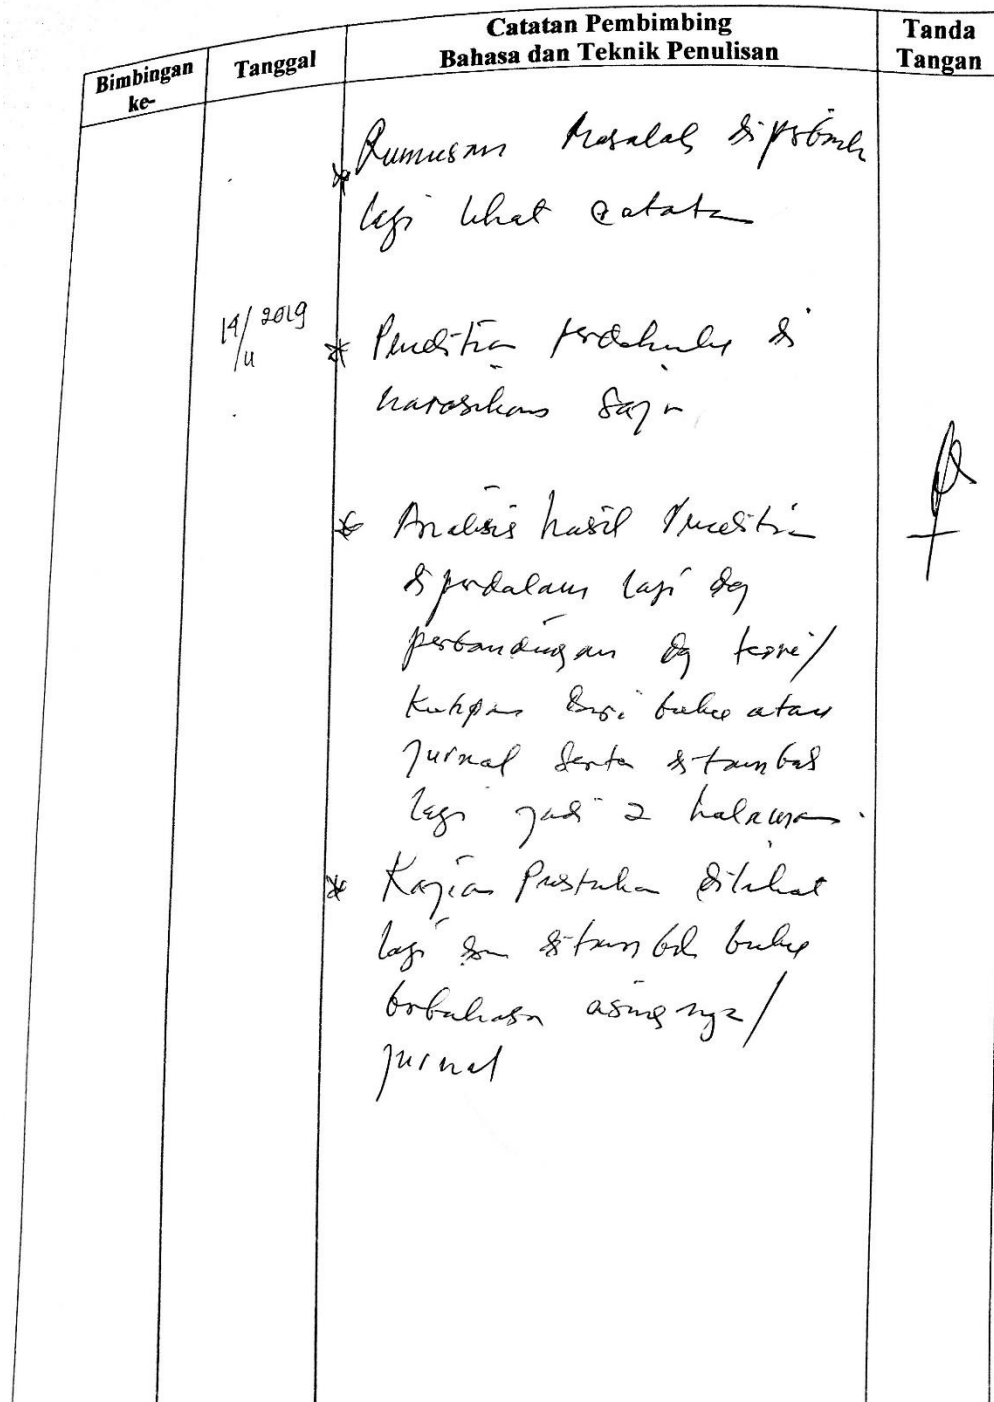 Catatan Pembimbing
Bahasa dan Teknik Penulisan
Tanda
Tangan
Bimbingan
ke-
Tanggal
* Rumusan Masalah diperbaiki
lagi lihat catatan
14/11 2019
* Penelitian terdahulu di
narasikan saja
* Analisis hasil Penelitian
diperdalam lagi dg
perbandingan dg teori/
Kutipan dari buku atau
jurnal serta ditambah
lagi jadi 2 halaman.
* Kajian Pustaka dilihat
lagi dan ditambah buku
berbahasa asingnya/
jurnal